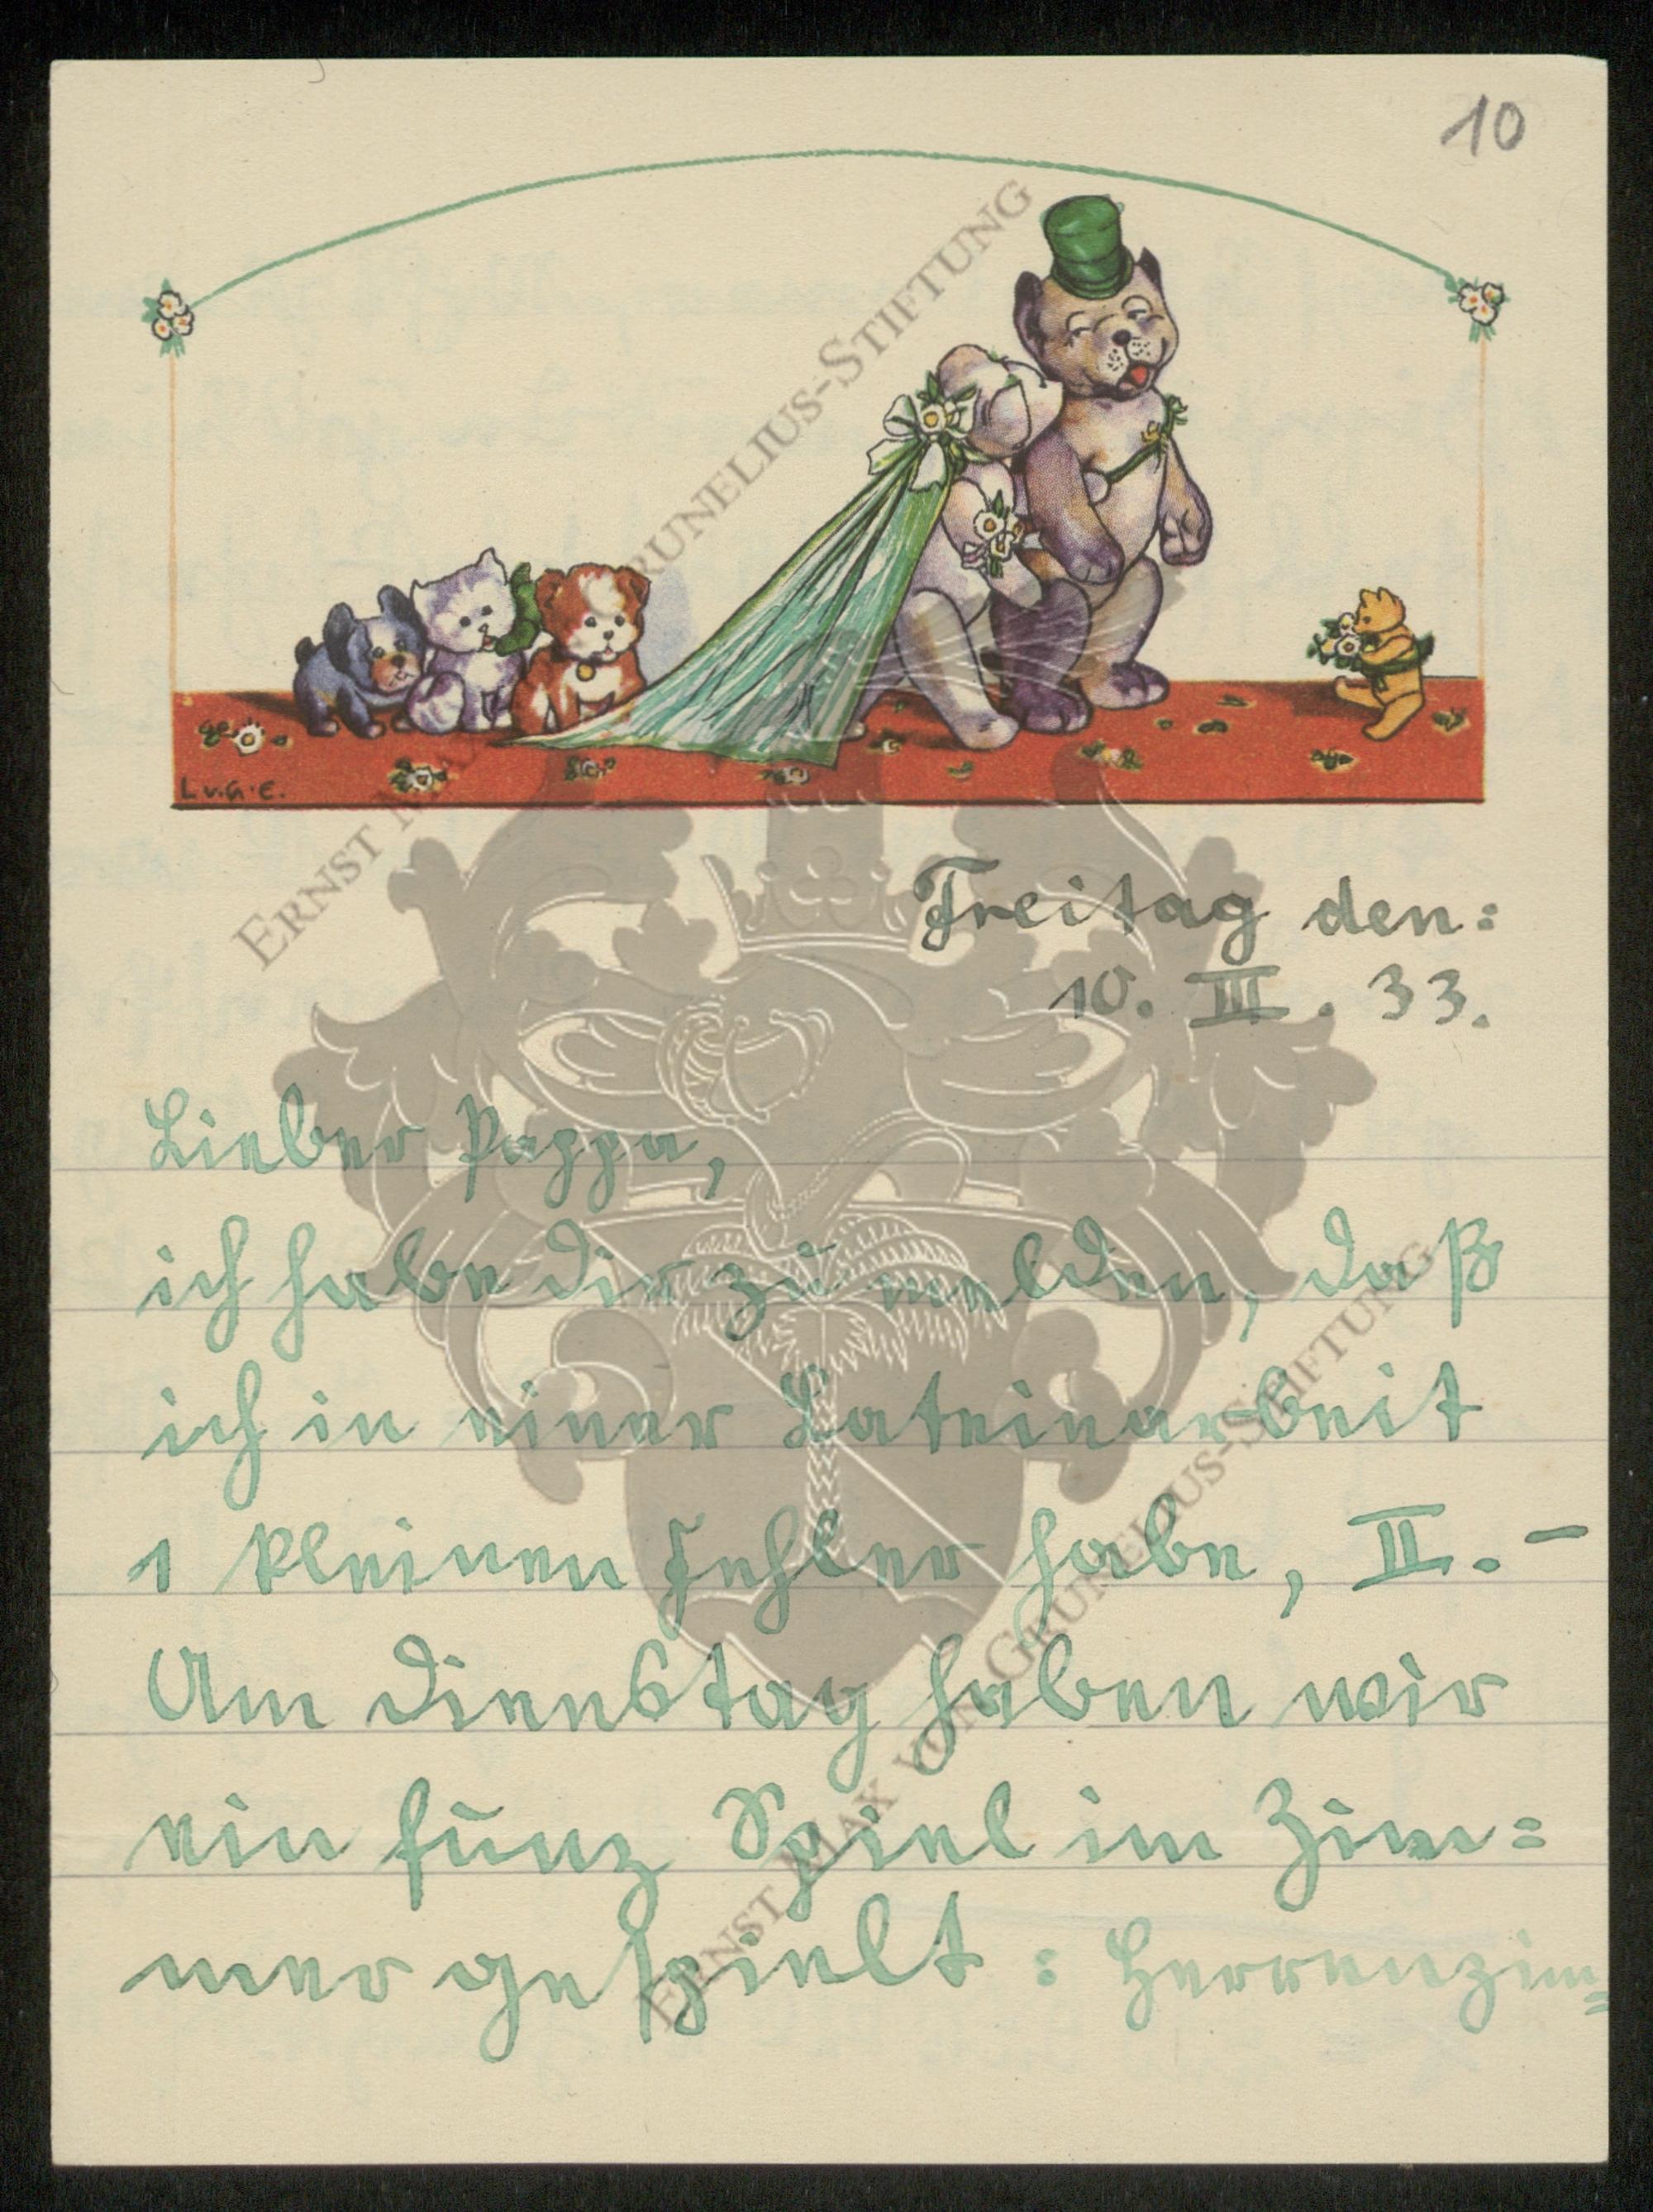 10
L.v.G.E.
Freitag den:
10. III. 33.
Lieber Pappa,
ich habe dir zu melden, daß
ich in einer Lateinarbeit
1 kleinen Fehler habe, II. –
Am Dienstag haben wir
ein Spiel im Zim=
mer gespielt: Herrenzim=
ERNST MAX VON GRUNELIUS-STIFTUNG
ERNST MAX VON GRUNELIUS-STIFTUNG